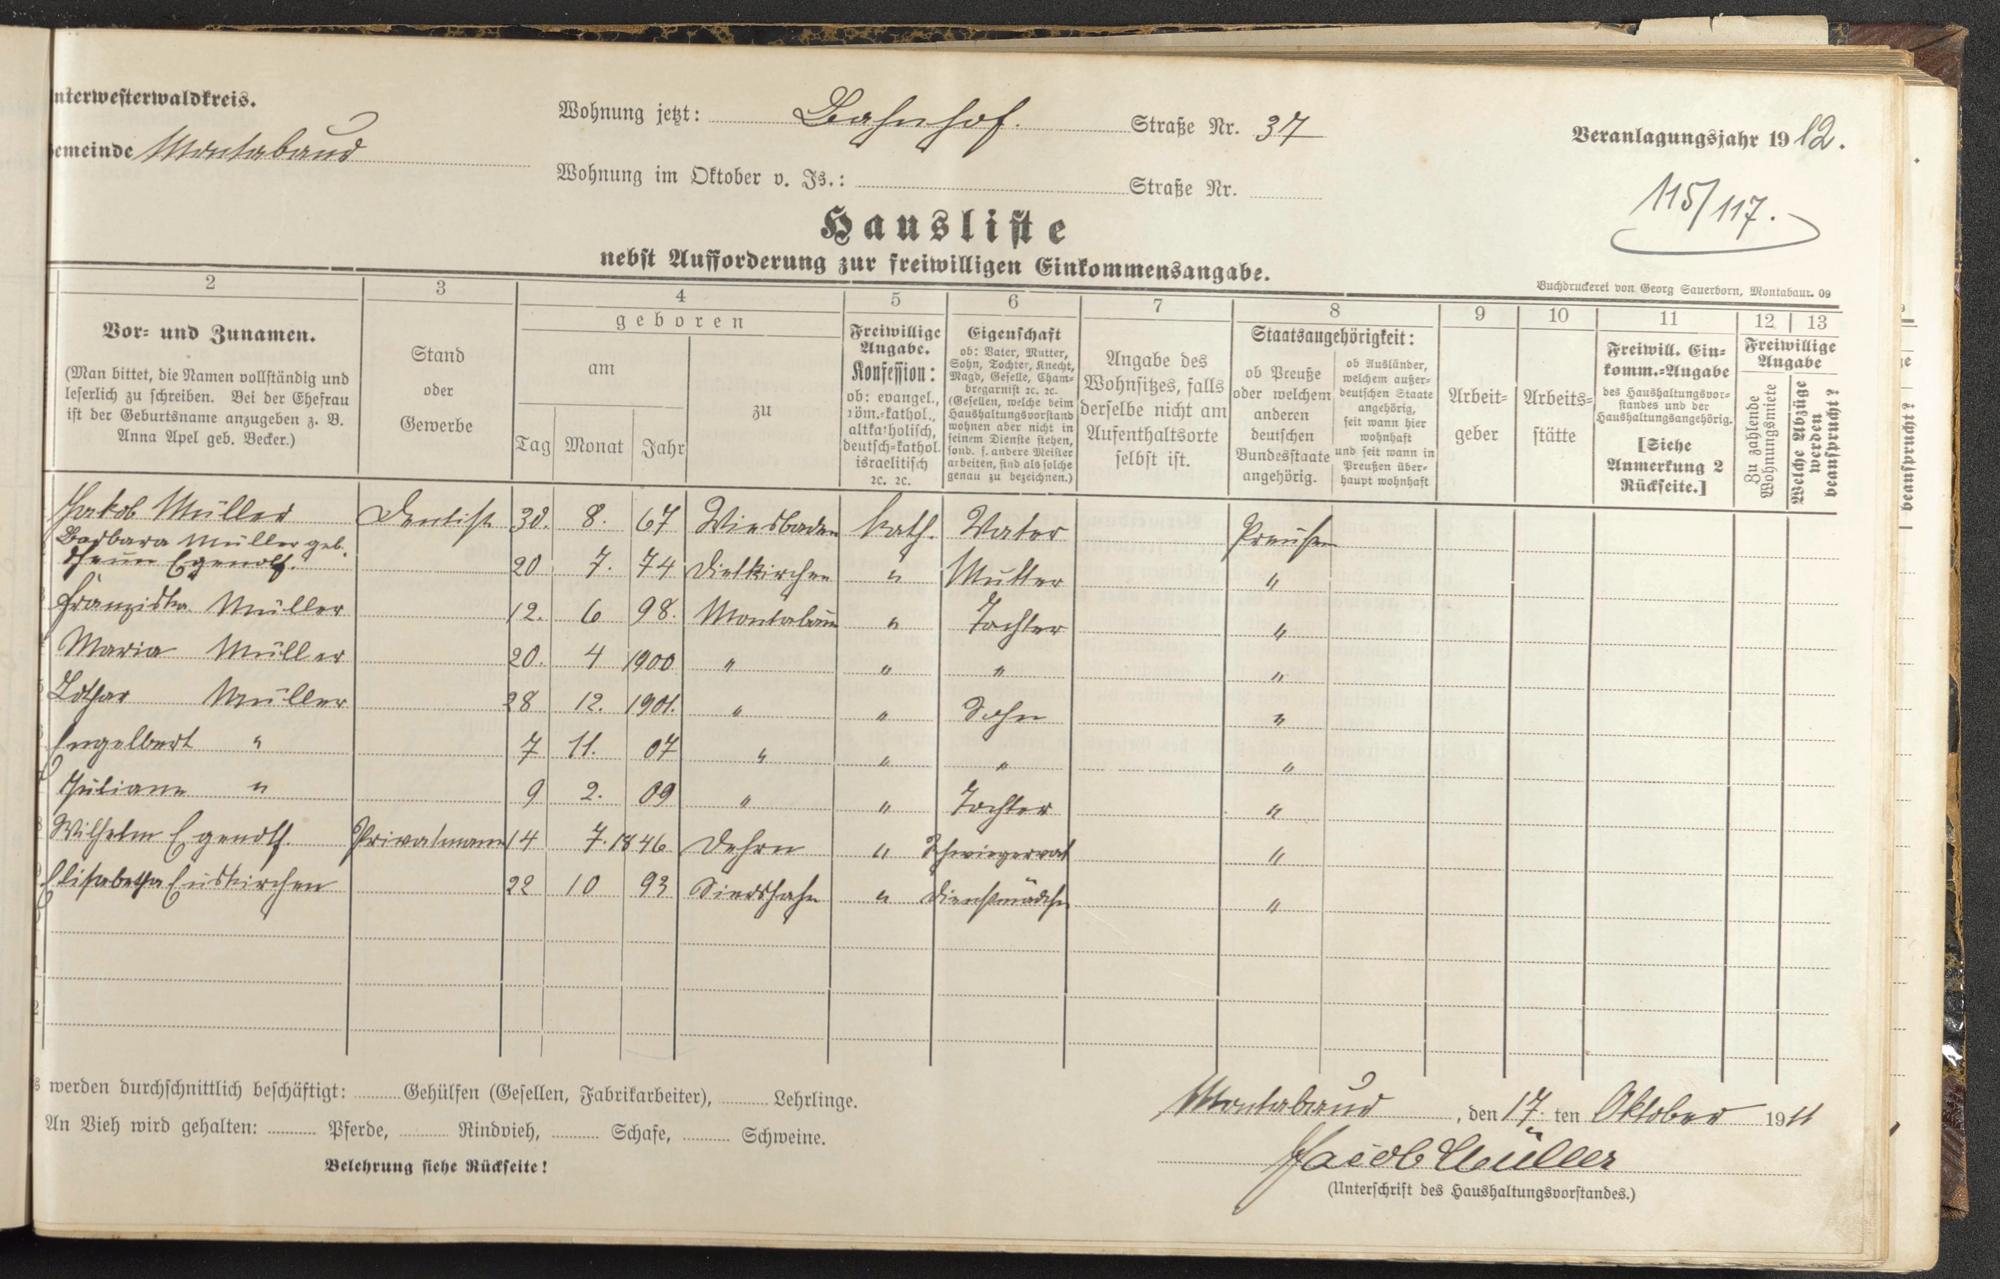 nterwesterwaldkreis.
emeinde Montabaur
Wohnung jetzt: Bahnhof. Straße Nr. 37
Wohnung im Oktober v. Js.: Straße Nr.
Veranlagungsjahr 1912.
115/117.
Hausliste
nebst Aufforderung zur freiwilligen Einkommensangabe.
Buchdruckerei von Georg Sauerborn, Montabaur. 09
2 3 4 5 6 7 8 9 10 11 12 13
Vor- und Zunamen.
(Man bittet, die Namen vollständig und
leserlich zu schreiben. Bei der Ehefrau
ist der Geburtsname anzugeben z. B.
Anna Apel geb. Becker.)
Stand
oder
Gewerbe
geboren
am
zu
Tag Monat Jahr
Freiwillige
Angabe.
Konfession:
ob: evangel.,
röm.-kathol.,
altkatholisch,
deutsch-kathol.
israelitisch
ꝛc. ꝛc.
Eigenschaft
ob: Vater, Mutter,
Sohn, Tochter, Knecht,
Magd, Geselle, Cham-
bregarnist ꝛc. ꝛc.
(Gesellen, welche beim
Haushaltungsvorstand
wohnen aber nicht in
seinem Dienste stehen,
sond. f. andere Meister
arbeiten, sind als solche
genau zu bezeichnen.)
Angabe des
Wohnsitzes, falls
derselbe nicht am
Aufenthaltsorte
selbst ist.
Staatsangehörigkeit:
ob Preuße
oder welchem
anderen
deutschen
Bundesstaate
angehörig.
ob Ausländer,
welchem außer-
deutschen Staate
angehörig,
seit wann hier
wohnhaft
und seit wann in
Preußen über-
haupt wohnhaft
Arbeit-
geber
Arbeits-
stätte
Freiwill. Ein-
komm.-Angabe
des Haushaltungsvor-
standes und der
Haushaltungsangehörig.
[Siehe
Anmerkung 2
Rückseite.]
Freiwillige
Angabe
Zu zahlende
Wohnungsmiete
Welche Abzüge
werden
beansprucht?
Jakob Müller Dentist 30. 8. 67 Wiesbaden kath. Vater Preußen
Barbara Müller geb.
Egenolf. 20 7. 74 Dietkirchen " Mutter "
Franziska Müller 12. 6 98. Montabaur " Tochter "
Maria Müller 20. 4 1900 " " " "
Lothar Müller 28 12. 1901. " " Sohn "
Engelbert " 7 11. 07 " " " "
Juliane " 9 2. 09 " " Tochter "
Wilhelm Egenolf. Privatmann 14 7. 1846 Dehrn " Schwiegervat "
Elisabetha Euskirchen 22 10 93 Siershahn " Dienstmädchen "
werden durchschnittlich beschäftigt: Gehülfen (Gesellen, Fabrikarbeiter), Lehrlinge.
An Vieh wird gehalten: Pferde, Rindvieh, Schafe, Schweine.
Belehrung siehe Rückseite!
Montabaur, den 17. ten Oktober 1911
Jacob Müller
(Unterschrift des Haushaltungsvorstandes.)